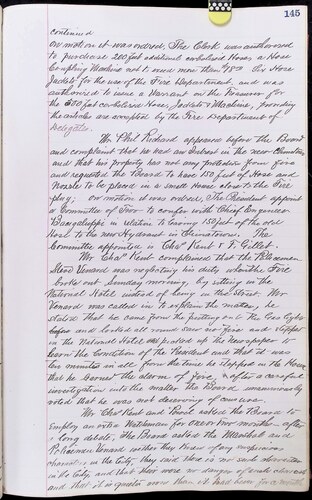 145
continued
On motion it was ordered, The Clerk was authorized
to purchase 200 feet additional carbolized Hose, a Hose
Coupling Machine not to exceed more than 
Jackets for the use of the Fire Department, and was
authorized to issue a Warrant on the Treasurer for
the 200 feet carbolized Hose, Jackets & Machine, providing
the articles are accepted by the Fire Department of
Delegates.
Mr. Phil Richard appeared before the Board
and complaint that he has an interest in the new
and that his property has not any protection from fire
and requested the Board to have 150 feet of Hose and
Nozzle to be placed in a small House close to the Fire
plug; on motion it was ordered, The President appoint
a Committee of Two to confer with Chief Engineer
in relation to having 150 feet of the old
Hose to the new Hydrant in The
Committee appointed is Chas Kent & F. Gillet.
Mr. Chas Kent complained that the Policeman
Steve Venard was neglecting his duty when the Fire
broke out Sunday morning, by sitting in the
National Hotel instead of being in the Street. Mr
Venard was called in to explain the matter, he
stated that he came from the putting out the Gas lights
and looked all round saw no fire and stepped
in the National Hotel and picked up the Newspaper to
learn the Condition of the President and that it was
ten minutes in all from the time he stepped in the House
that he the alarm of fire, after a careful
investigation into the matter the Board unanimously
voted that he was not deserving of censure.
Mr. Chas Kent and asked the Board to
Employ an extra Watchman for one or two months, after
a long debate, The Board asked the Marshal and
Policeman Venard wether they knew of any suspicious
characters in the City, they said there is no such characters
in the City, and that there were no danger of such characters
and that it is quieter now then it had been for a month